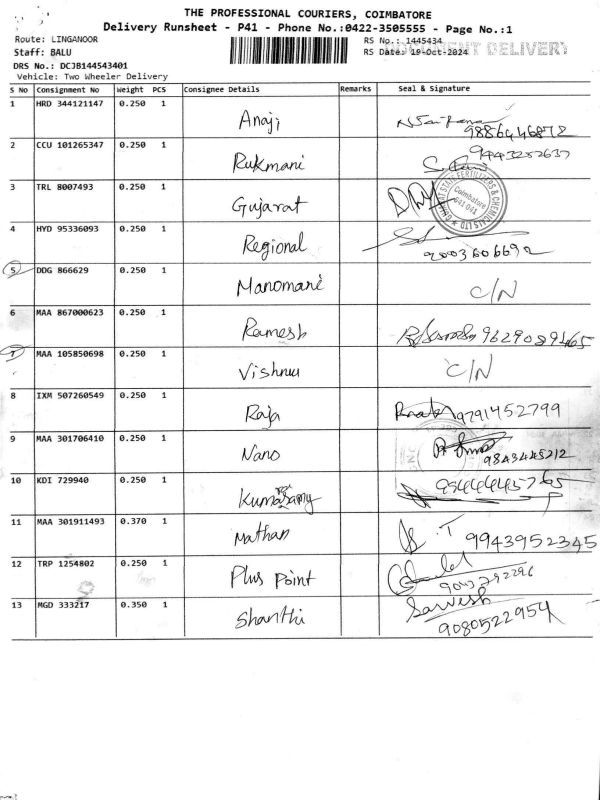 THE PROFESSIONAL COURIERS, COIMBATORE
Delivery Runsheet - P41 - Phone No.:0422-3505555 - Page No.:1
Route: LINGANOOR
RS No.: 1445434
Staff: BALU
RS Date: 19-Oct-2024
DOCUMENT DELIVERY
DRS No.: DCJB144543401
Vehicle: Two Wheeler Delivery
S No Consignment No Weight PCS Consignee Details Remarks Seal & Signature
1 HRD 344121147 0.250 1 Anaji 9886446872
2 CCU 101265347 0.250 1 Rukmani 9443252637
3 TRL 8007493 0.250 1 Gujarat
STATE FERTILIZERS & CHEMICALS LTD
Coimbatore
641 041
4 HYD 95336093 0.250 1 Regional 9003606692
5 DDG 866629 0.250 1 Manomani C/N
6 MAA 867000623 0.250 1 Ramesh 9629089465
7 MAA 105850698 0.250 1 Vishnu C/N
8 IXM 507260549 0.250 1 Raja 9791452799
9 MAA 301706410 0.250 1 Nano 9843445212
10 KDI 729940 0.250 1 Kumarasamy
11 MAA 301911493 0.370 1 Mathan S.T 9943952345
12 TRP 1254802 0.250 1 Plus Point
13 MGD 333217 0.350 1 Shanthi Sarvesh 9080522954